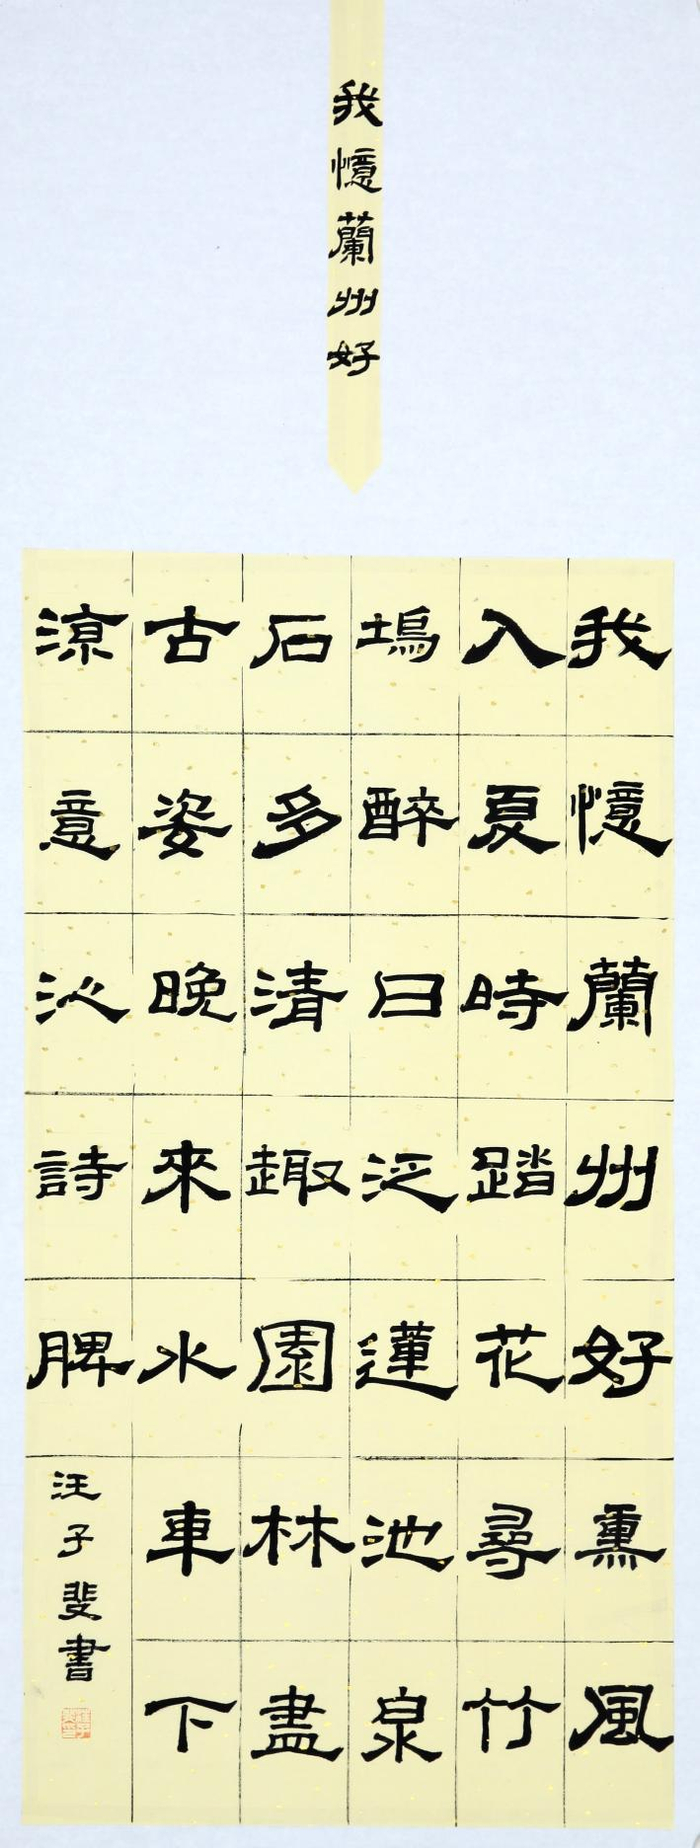 我憶蘭州好
我憶蘭州好熏風
入夏時踏花尋竹
塢醉日泛蓮池泉
石多清趣園林盡
古姿晚來水車下
涼意沁詩脾
汪子斐書